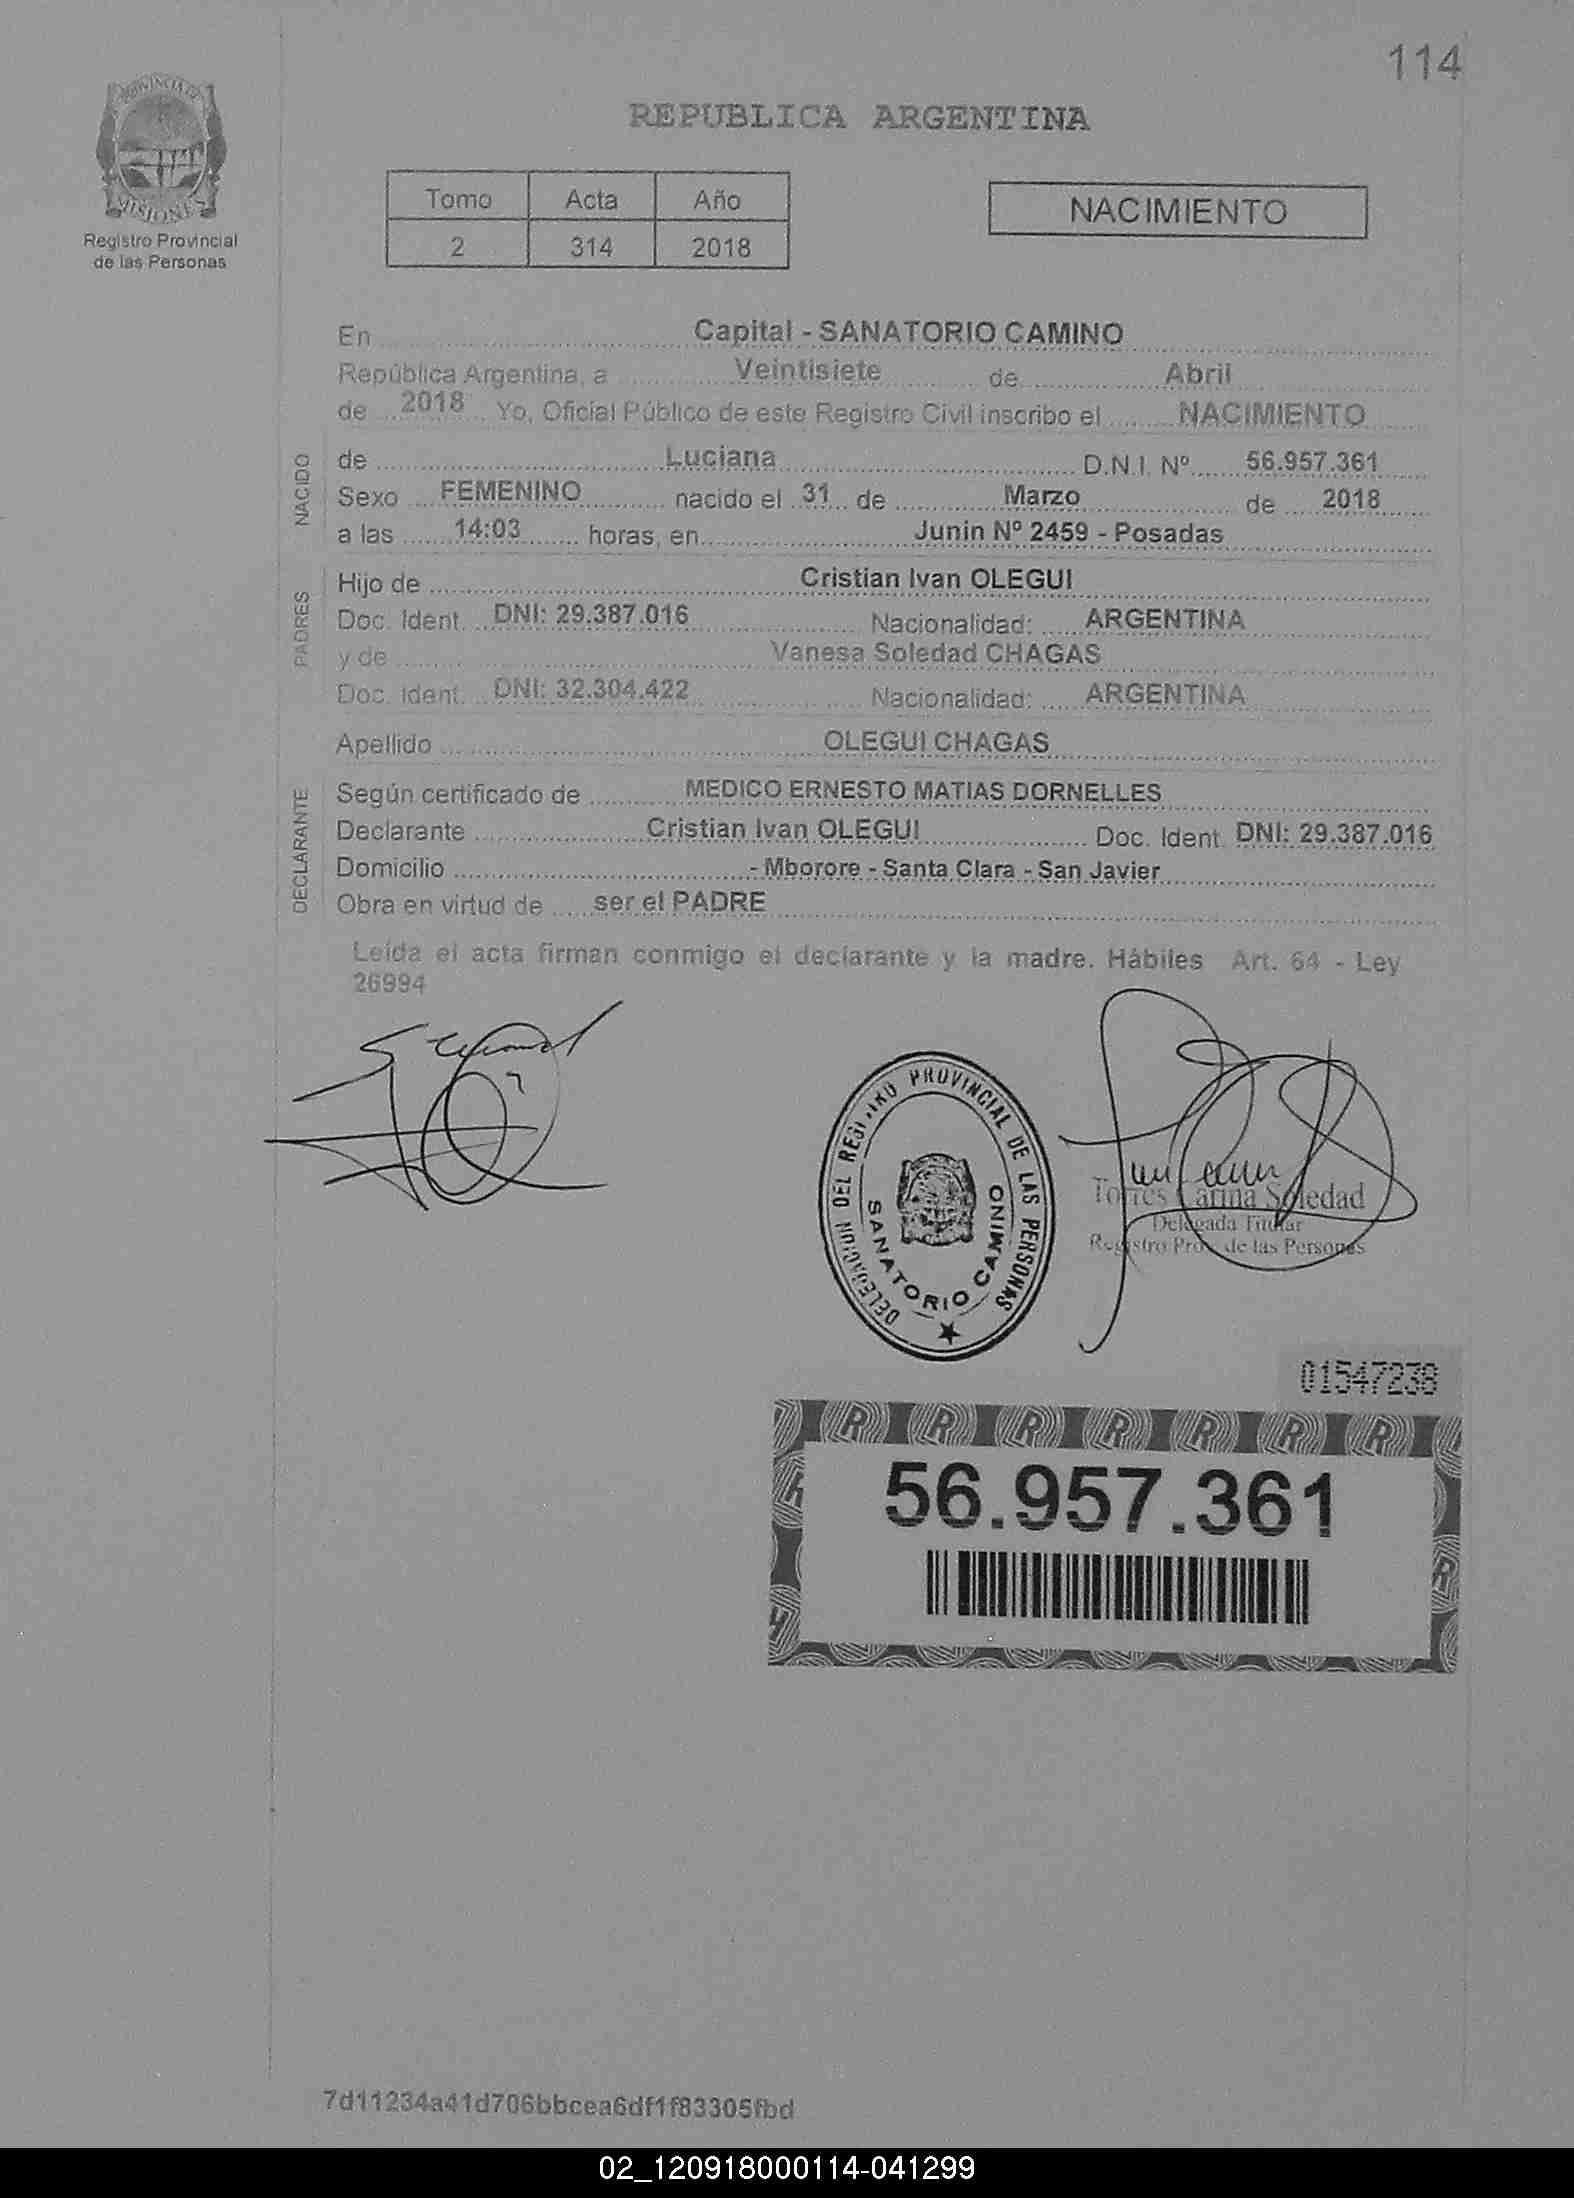 114
PROVINCIA DE
MISIONES
Registro Provincial
de las Personas
REPUBLICA ARGENTINA
Tomo Acta Año
2 314 2018
NACIMIENTO
En Capital - SANATORIO CAMINO
República Argentina, a Veintisiete de Abril
de 2018 Yo, Oficial Público de este Registro Civil inscribo el NACIMIENTO
NACIDO
de Luciana D.N.I. Nº 56.957.361
Sexo FEMENINO nacido el 31 de Marzo de 2018
a las 14:03 horas, en Junin Nº 2459 - Posadas
PADRES
Hijo de Cristian Ivan OLEGUI
Doc. Ident. DNI: 29.387.016 Nacionalidad: ARGENTINA
y de Vanesa Soledad CHAGAS
Doc. Ident. DNI: 32.304.422 Nacionalidad: ARGENTINA
Apellido OLEGUI CHAGAS
DECLARANTE
Según certificado de MEDICO ERNESTO MATIAS DORNELLES
Declarante Cristian Ivan OLEGUI Doc. Ident. DNI: 29.387.016
Domicilio - Mborore - Santa Clara - San Javier
Obra en virtud de ser el PADRE
Leída el acta firman conmigo el declarante y la madre. Hábiles Art. 64 - Ley
26994
DELEGACION DEL REGISTRO PROVINCIAL DE LAS PERSONAS
SANATORIO CAMINO
Torres Carina Soledad
Delegada Titular
Registro Prov. de las Personas
01547238
56.957.361
7d11234a41d706bbcea6df1f83305fbd
02_120918000114-041299